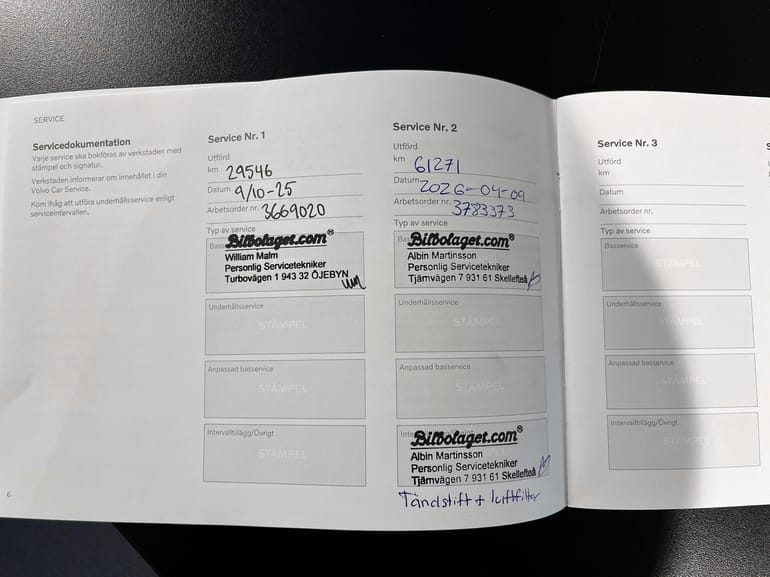 SERVICE
Servicedokumentation
Varje service ska bokföras av verkstaden med
stämpel och signatur.
Verkstaden informerar om innehållet i din
Volvo Car Service.
Kom ihåg att utföra underhållsservice enligt
serviceintervallen.
6
Service Nr. 1
Utförd
km 29546
Datum 9/10-25
Arbetsorder nr. 3669020
Typ av service
Bilbolaget.com®
William Malm
Personlig Servicetekniker
Turbovägen 1 943 32 ÖJEBYN
Underhållsservice
STÄMPEL
Anpassad basservice
STÄMPEL
Intervalltillägg/Övrigt
STÄMPEL
Service Nr. 2
Utförd
km 61271
Datum 2026-04-09
Arbetsorder nr. 3783373
Typ av service
Bilbolaget.com®
Albin Martinsson
Personlig Servicetekniker
Tjärnvägen 7 931 61 Skellefteå
Underhållsservice
STÄMPEL
Anpassad basservice
STÄMPEL
Bilbolaget.com®
Albin Martinsson
Personlig Servicetekniker
Tjärnvägen 7 931 61 Skellefteå
Tändstift + luftfilter
Service Nr. 3
Utförd
km
Datum
Arbetsorder nr.
Typ av service
Basservice
STÄMPEL
Underhållsservice
STÄMPEL
Anpassad basservice
STÄMPEL
Intervalltillägg/Övrigt
STÄMPEL